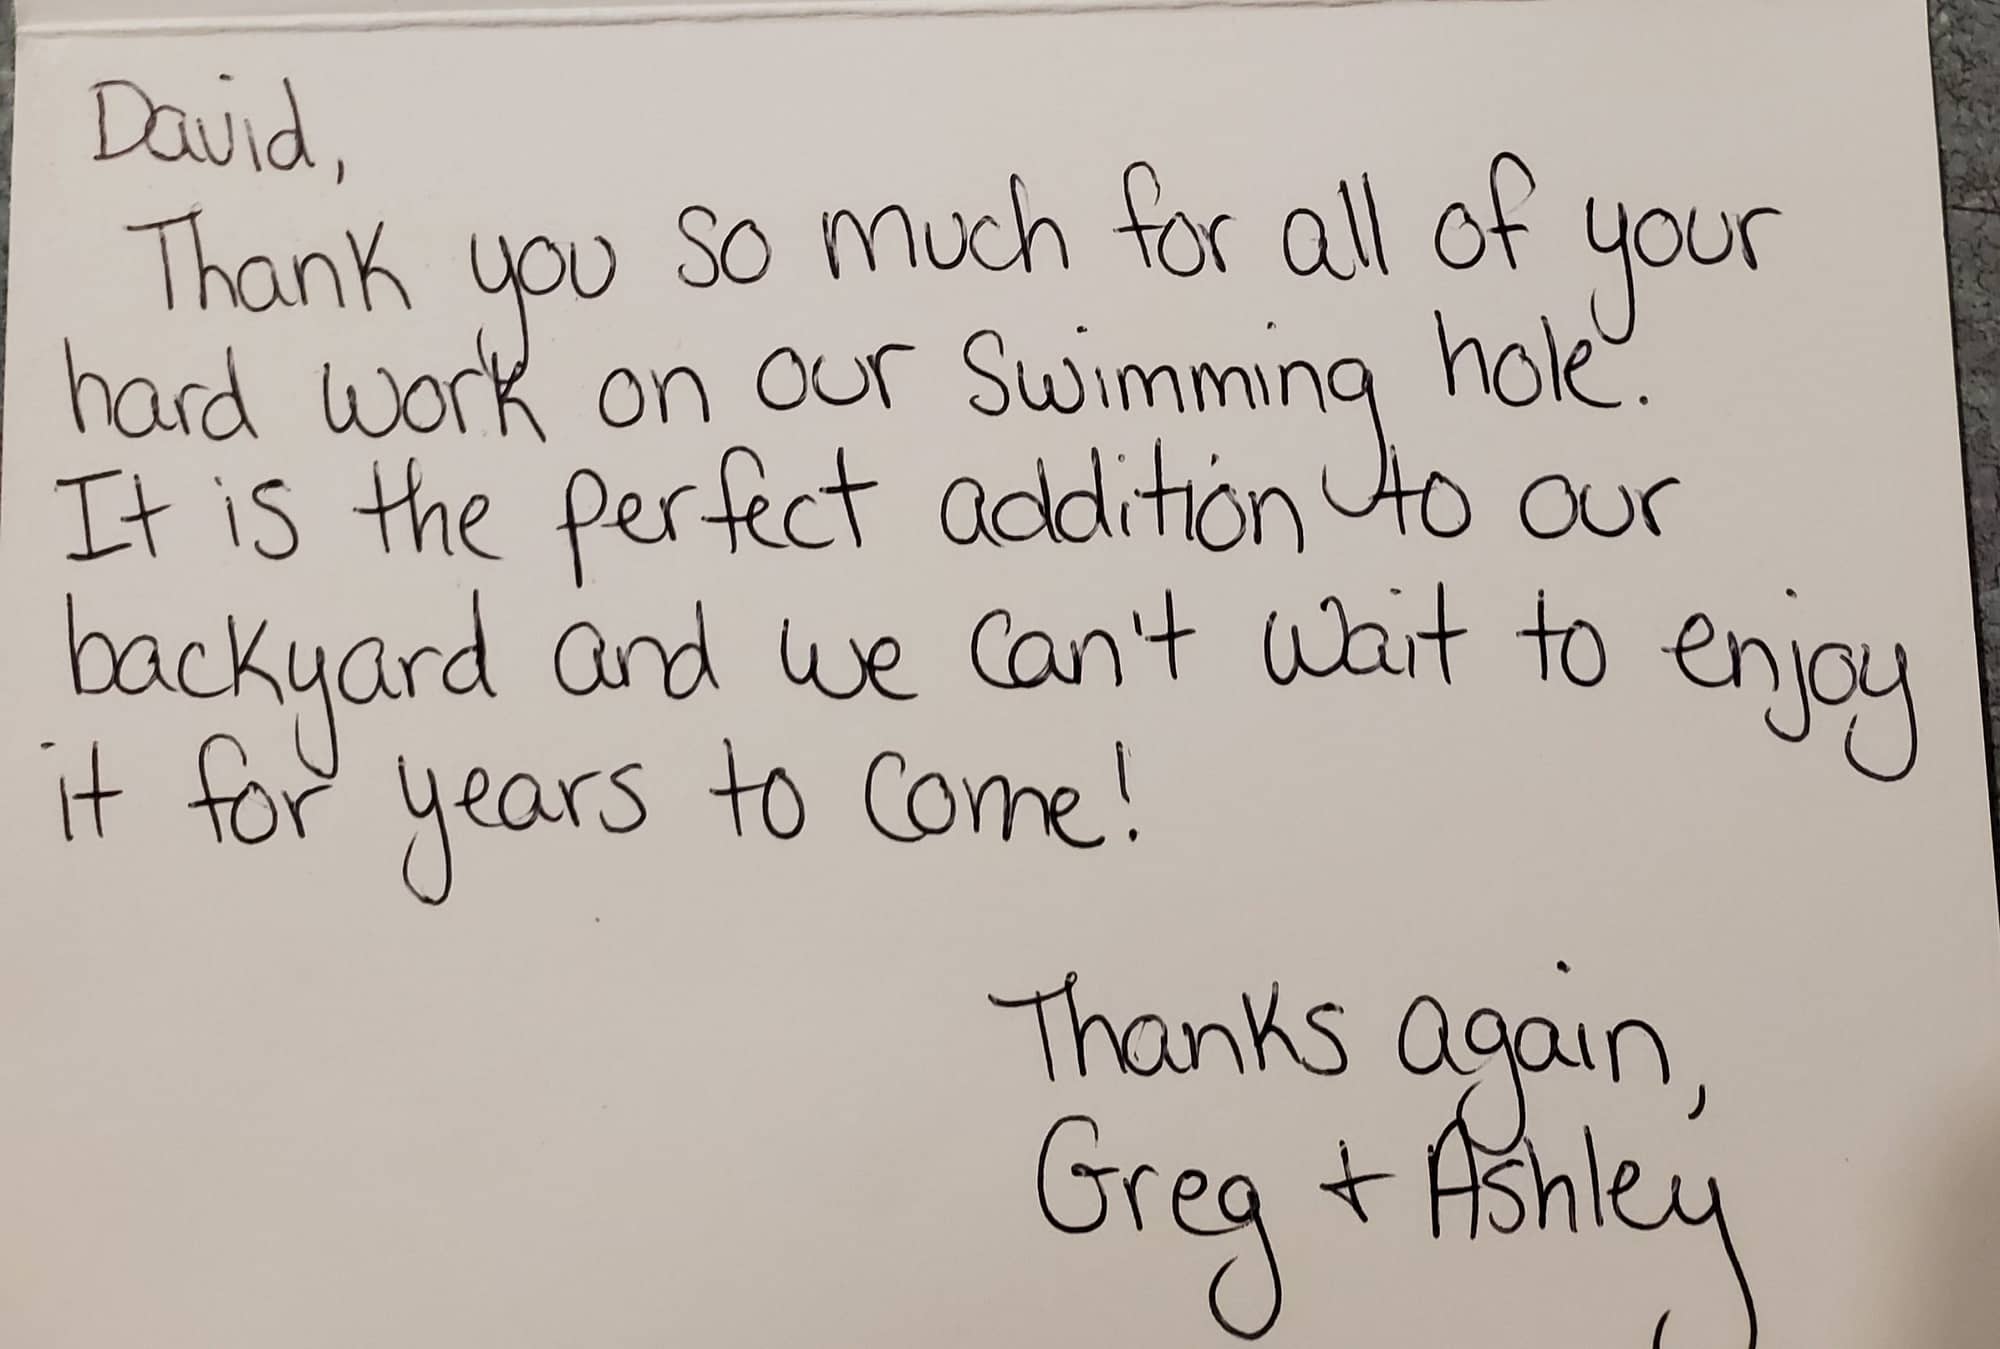 David,
Thank you so much for all of your
hard work on our swimming hole.
It is the perfect addition to our
backyard and we can't wait to enjoy
it for years to come!
Thanks again,
Greg + Ashley